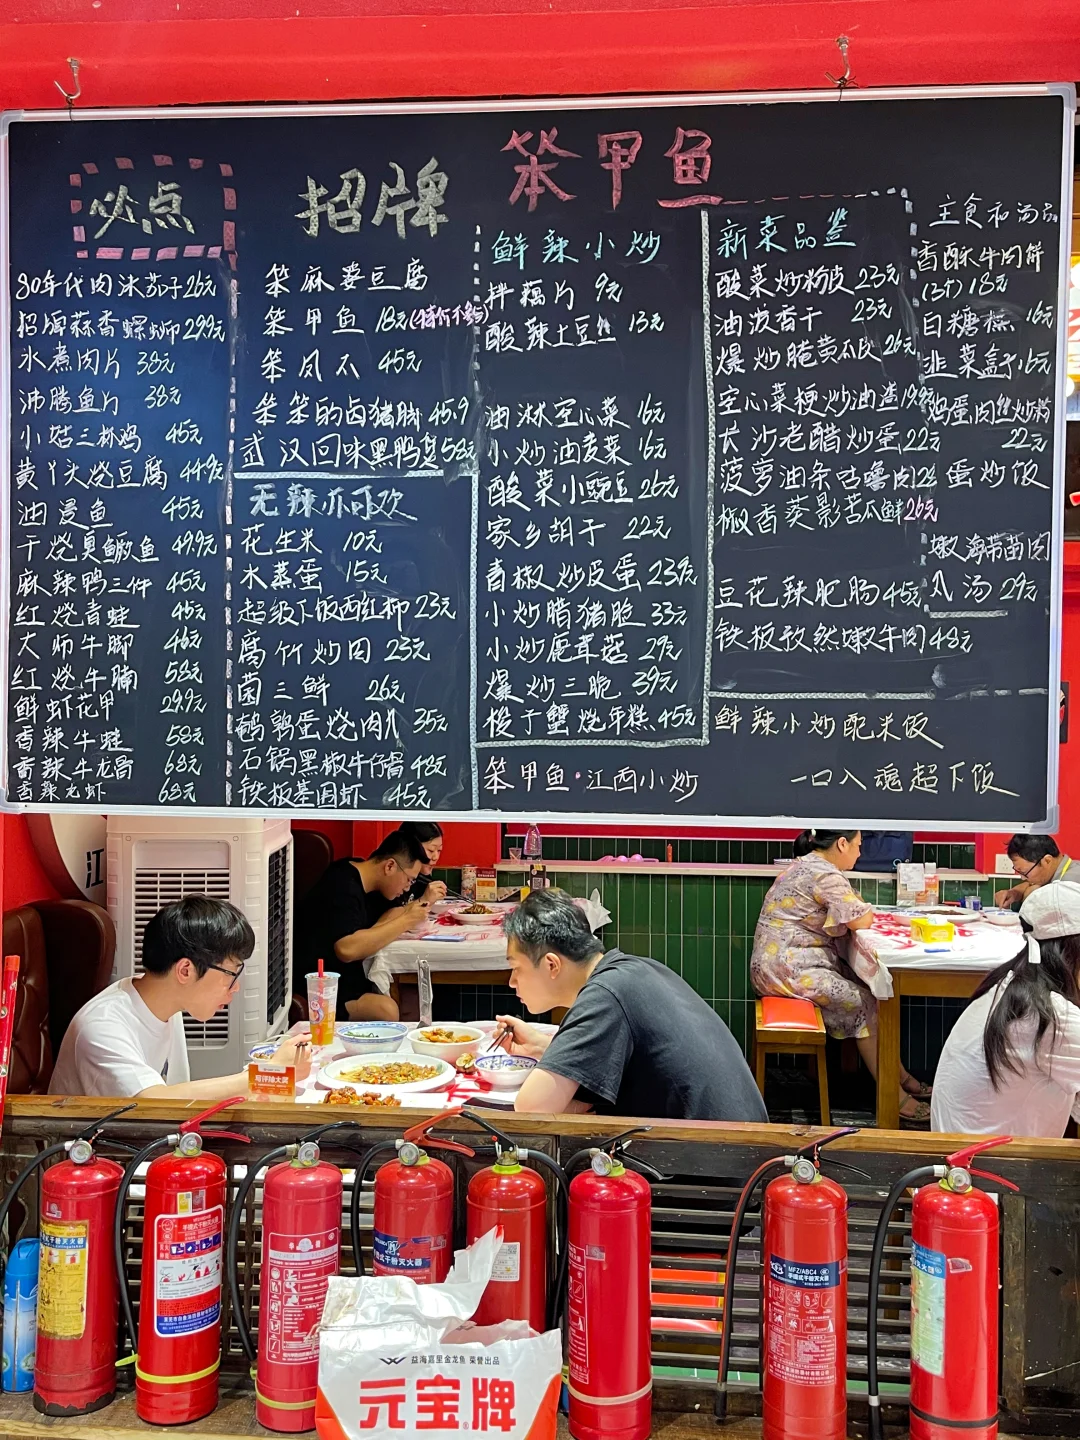 笨甲鱼
必点
80年代肉沫茄子26元
招牌蒜香螺蛳 29.9元
水煮肉片 38元
沸腾鱼片 38元
小姑三杯鸡 45元
黄丫头烧豆腐 44.9元
油浸鱼 45元
干烧臭鳜鱼 49.9元
麻辣鸭三件 45元
红烧青蛙 45元
大师牛脚 46元
红烧牛腩 58元
鲜虾花甲 29.9元
香辣牛蛙 58元
香辣牛龙骨 68元
香辣龙虾 68元
招牌
笨麻婆豆腐
笨甲鱼 18元
笨凤爪 45元
笨笨的卤猪脚 45.9
武汉回味黑鸭 58元
无辣亦可欢
花生米 10元
水蒸蛋 15元
超级下饭西红柳 23元
腐竹炒肉 23元
菌三鲜 26元
鹌鹑蛋烧肉 35元
石锅黑椒牛仔骨 48元
铁板基围虾 45元
鲜辣小炒
拌藕片 9元
酸辣土豆丝 13元
油淋空心菜 16元
小炒油麦菜 16元
酸菜小豌豆 26元
家乡胡子 22元
青椒炒皮蛋 23.9元
小炒腊猪脸 33元
小炒鹿茸菇 29元
爆炒三脆 39元
梭子蟹烧年糕 45元
笨甲鱼·江西小炒
新菜品鉴
酸菜炒粉皮 23元
油泼香干 23元
爆炒腌黄瓜皮 26元
空心菜梗炒油渣 19.9元
长沙老醋炒蛋 22元
菠萝油条咕噜肉
椒香葵影苦瓜鲜 26元
豆花辣肥肠 45元
铁板孜然嫩牛肉 48元
鲜辣小炒配米饭
一口入魂超下饭
主食和汤品
香酥牛肉饼
(3个) 18元
白糖糕 16元
韭菜盒子 16元
鸡蛋肉丝炒粉
22元
蛋炒饭
嫩海带苗肉
丸汤 29元
江
手提式干粉灭火器
MFZ/ABC4
手提式干粉灭火器
益海嘉里金龙鱼 荣誉出品
元宝牌